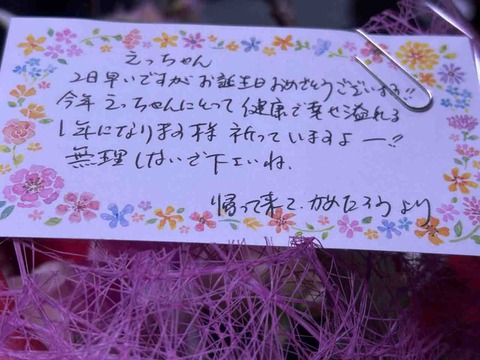 えっちゃん
2日早いですがお誕生日おめでとうございます!!
今年えっちゃんにとって健康で幸せ溢れる
1年になります様祈っていますよー!!
無理しないで下さいね、
帰って来て、かめたろうより